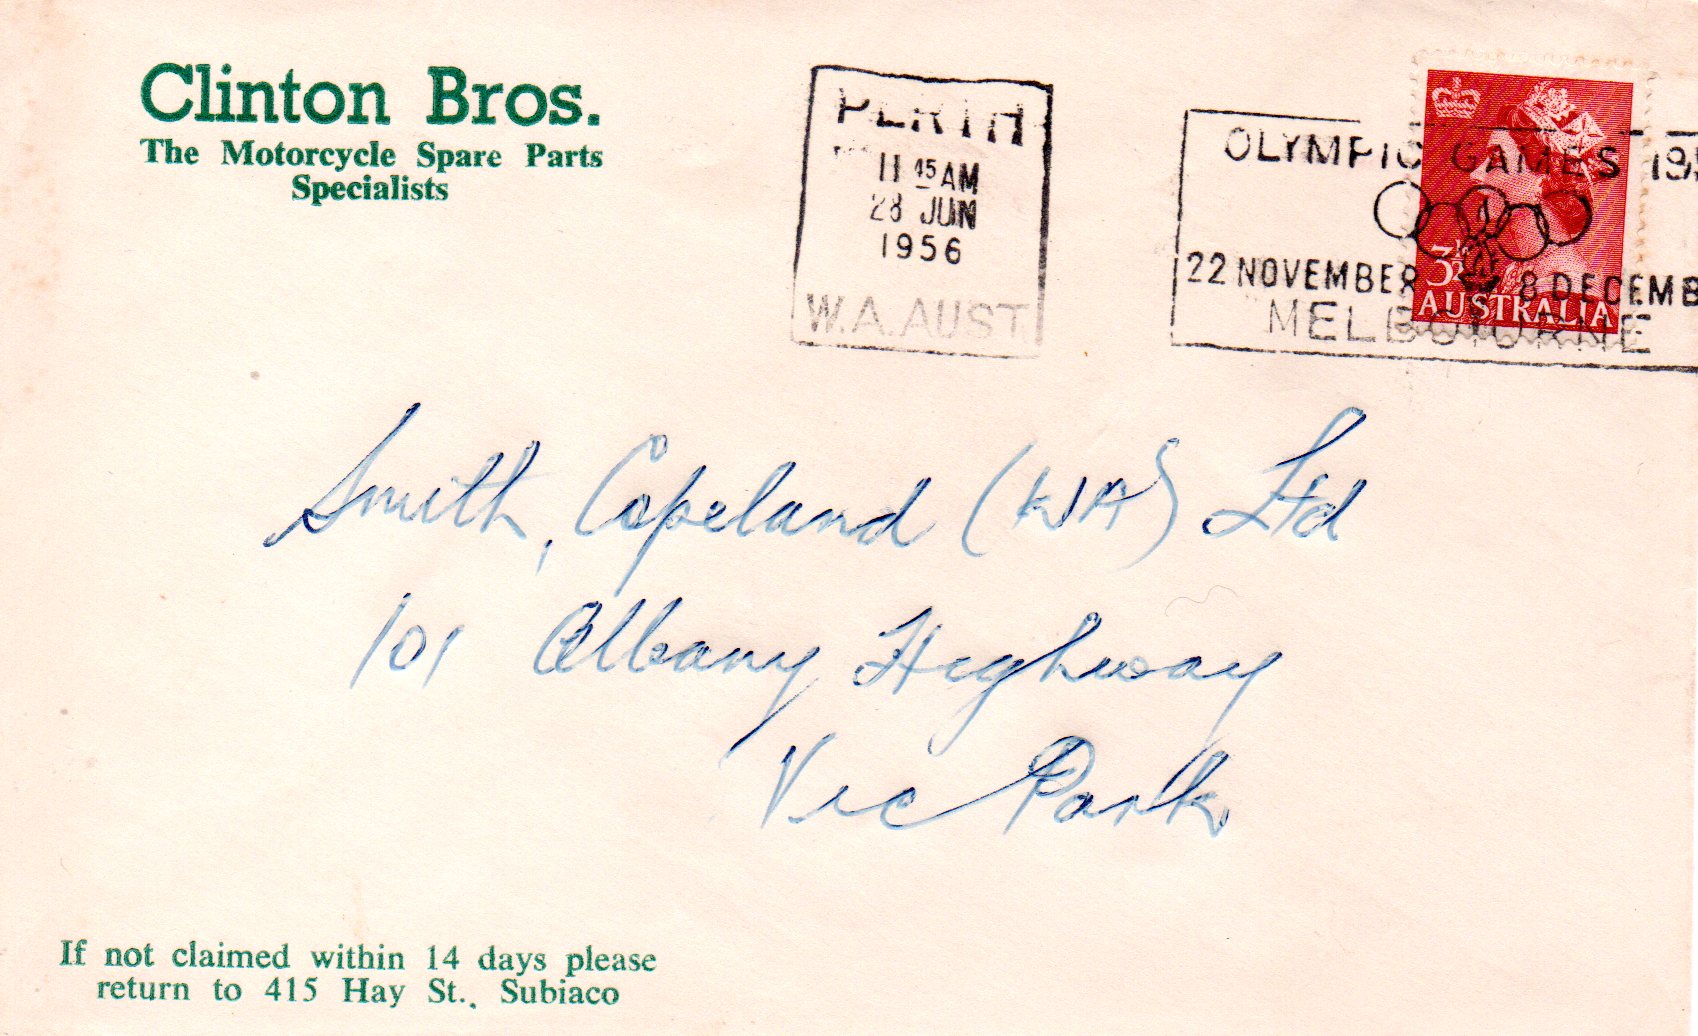 Clinton Bros.
The Motorcycle Spare Parts
Specialists
PERTH
11 45 AM
28 JUN
1956
W.A. AUST.
OLYMPIC GAMES 195
22 NOVEMBER 8 DECEMB
MELBOURNE
3½
AUSTRALIA
Smith, Copeland (WA) Ltd
101 Albany Highway
Vic Park
If not claimed within 14 days please
return to 415 Hay St., Subiaco